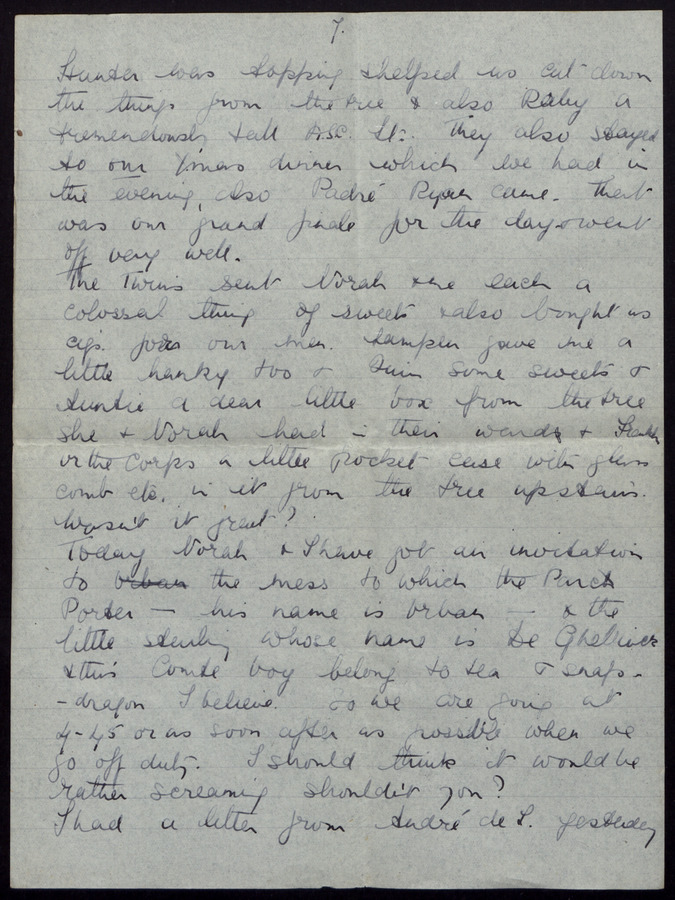 7.
Hunter was topping & helped us cut down
the things from the tree & also Raby a
tremendously tall A.S.C. Lt. They also stayed
to our Xmas dinner which we had in
the evening, also Padré Ryan came. That
was our grand finale for the day & went
off very well.
The Twins sent Norah & me each a
colossal thing of sweets & also bought us
cigs. for our men. gave me a
little hanky too & some sweets &
Auntie a dear little box from the tree
she & Norah had in their wards &
or the Corps a little pocket case with glass
comb etc. in it from the tree upstairs.
Wasn't it great?
Today Norah & I have got an invitation
to Urban the mess to which the
Porter — his name is Urban — & the
little whose name is De
& this Comte boy belong to tea & snap-
-dragon I believe. So we are going at
4-45 or as soon after as possible when we
go off duty. I should think it would be
rather screaming shouldn't you?
I had a letter from André de S. yesterday